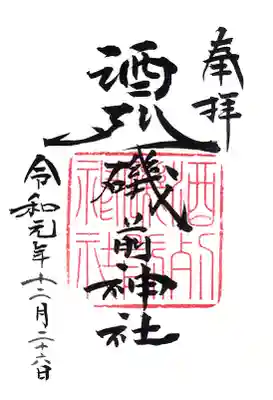 奉拝
酒列磯前神社
令和元年十二月二十六日
酒列
磯前
神社